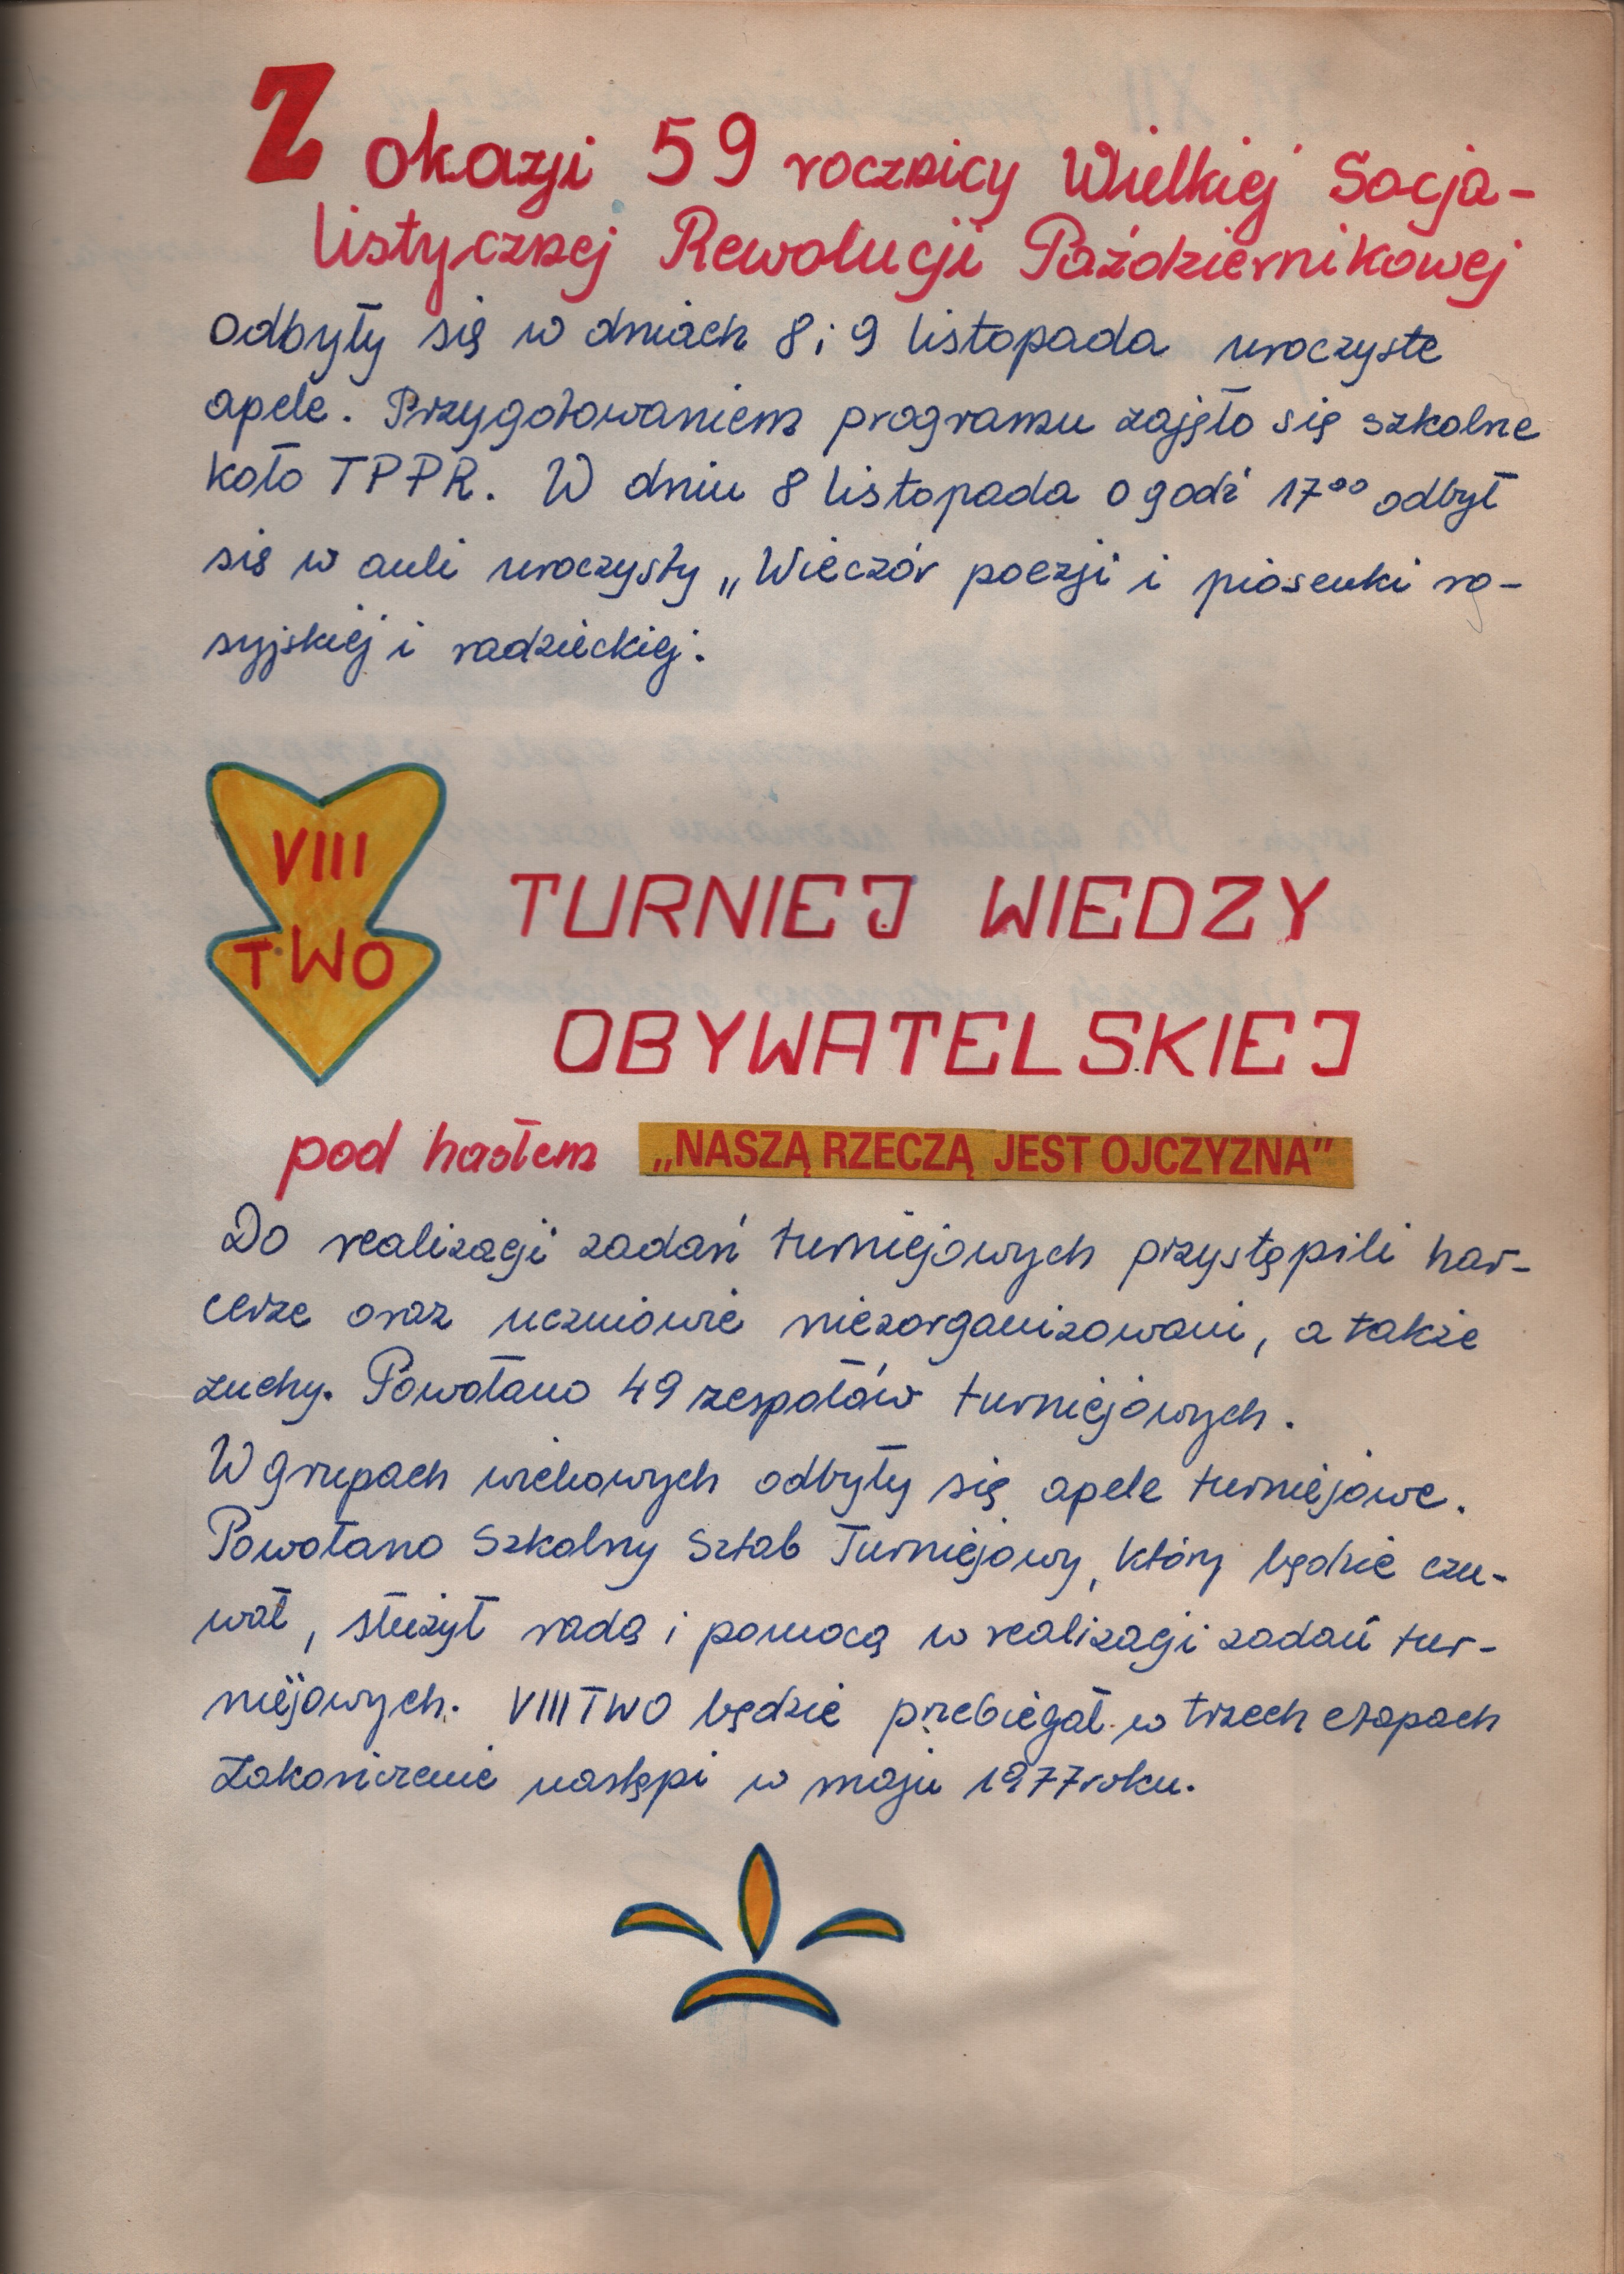 Z okazji 59 rocznicy Wielkiej Socja-
listycznej Rewolucji Październikowej
odbyły się w dniach 8 i 9 listopada uroczyste
apele. Przygotowaniem programu zajęło się szkolne
koło TPPR. W dniu 8 listopada o godź 17⁰⁰ odbył
się w auli uroczysty „Wieczór poezji i piosenki ro-
syjskiej i radzieckiej.
VIII
TWO
TURNIEJ WIEDZY
OBYWATELSKIEJ
pod hasłem „NASZĄ RZECZĄ JEST OJCZYZNA"
Do realizacji zadań turniejowych przystąpili har-
cerze oraz uczniowie niezorganizowani, a także
zuchy. Powołano 49 zespołów turniejowych.
W grupach wiekowych odbyły się apele turniejowe.
Powołano Szkolny Sztab Turniejowy, który będzie czu-
wał, służył radą i pomocą w realizacji zadań tur-
niejowych. VIII TWO będzie przebiegał w trzech etapach
Zakończenie nastąpi w maju 1977 roku.